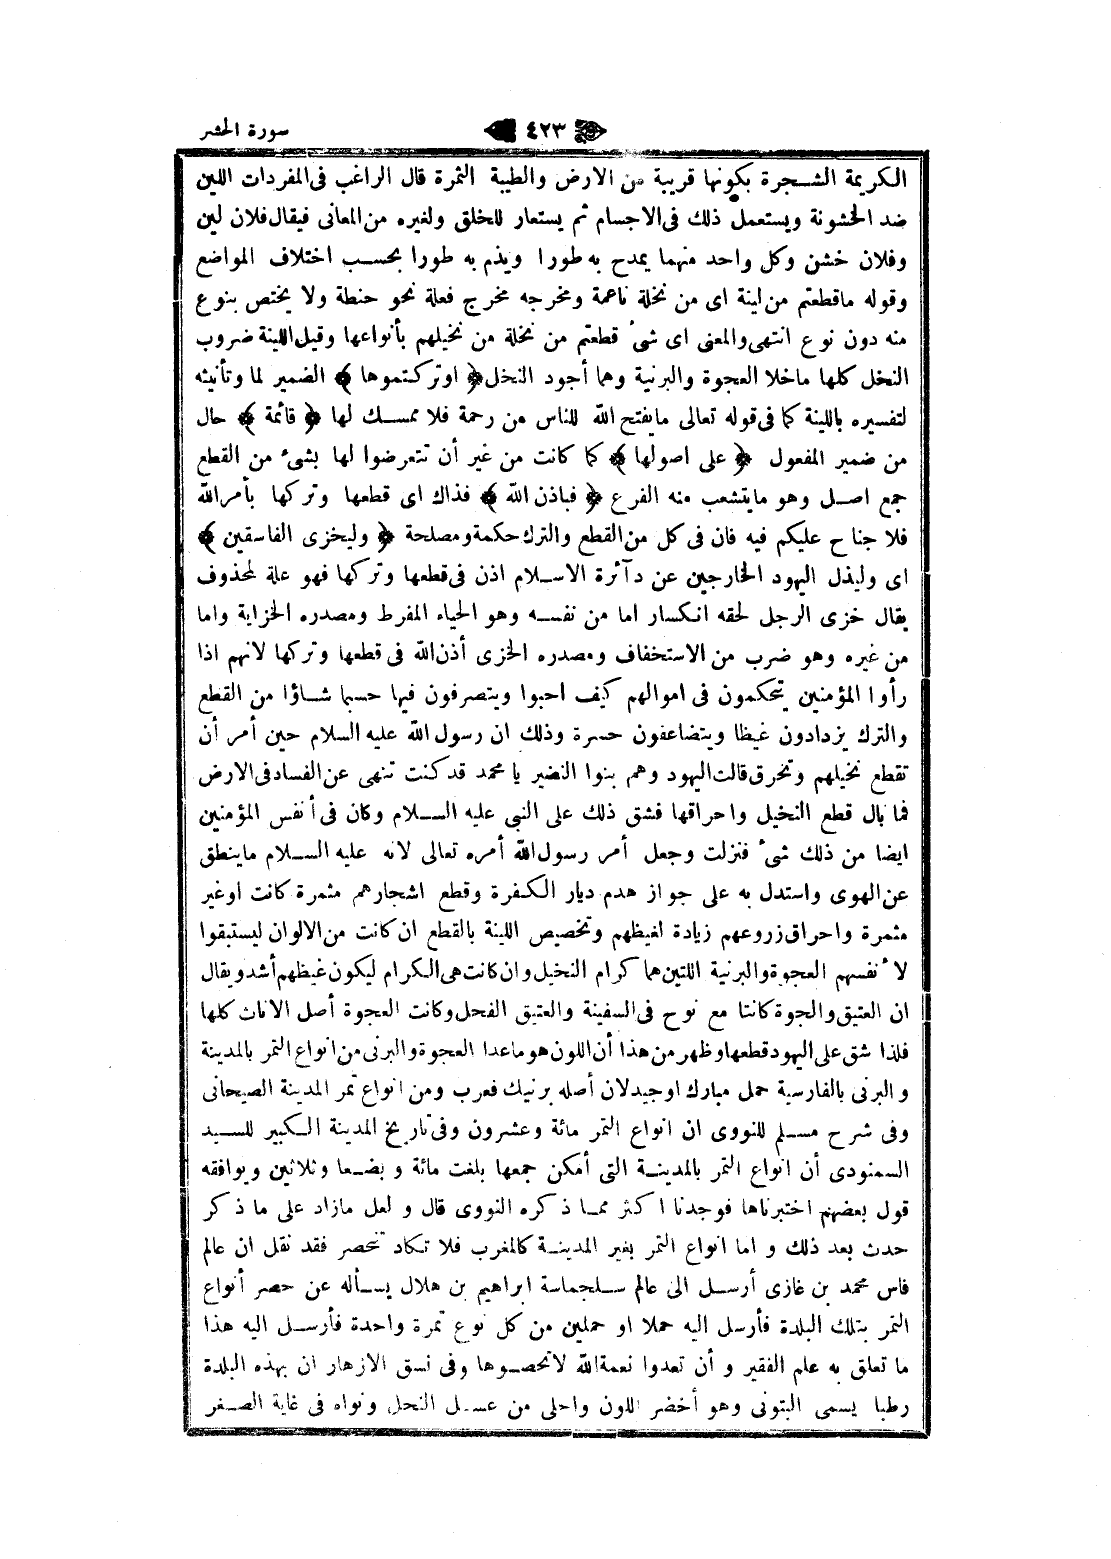 سورة الحشر
٤٢٣
الكريمة الشجرة بكونها قريبة من الارض والطيبة الثمرة قال الراغب فى المفردات اللين
ضد الخشونة ويستعمل ذلك فى الاجسام ثم يستعار للخلق ولغيره من المعانى فيقال فلان لين
وفلان خشن وكل واحد منهما يمدح به طورا ويذم به طورا بحسب اختلاف المواضع
وقوله ماقطعتم من لينة اى من نخلة ناعمة ومخرجه مخرج فعلة نحو حنطة ولا يختص بنوع
منه دون نوع انتهى والمعنى اى شىء قطعتم من نخلة من نخيلهم بأنواعها وقيل اللينة ضروب
النخل كلها ماخلا العجوة والبرنية وهما أجود النخل ﴿ اوتركتموها ﴾ الضمير لما وتأنيثه
لتفسيره باللينة كما فى قوله تعالى مايفتح الله للناس من رحمة فلا ممسك لها ﴿ قائمة ﴾ حال
من ضمير المفعول ﴿ على اصولها ﴾ كما كانت من غير أن تتعرضوا لها بشىء من القطع
جمع اصل وهو مايتشعب منه الفرع ﴿ فباذن الله ﴾ فذاك اى قطعها وتركها بأمر الله
فلا جناح عليكم فيه فان فى كل من القطع والترك حكمة ومصلحة ﴿ وليخزى الفاسقين ﴾
اى وليذل اليهود الخارجين عن دآئرة الاسلام اذن فى قطعها وتركها فهو علة لمحذوف
يقال خزى الرجل لحقه انكسار اما من نفسه وهو الحياء المفرط ومصدره الخزاية واما
من غيره وهو ضرب من الاستخفاف ومصدره الخزى أذن الله فى قطعها وتركها لانهم اذا
رأوا المؤمنين يتحكمون فى اموالهم كيف احبوا ويتصرفون فيها حسبما شاؤا من القطع
والترك يزدادون غيظا ويتضاعفون حسرة وذلك ان رسول الله عليه السلام حين أمر أن
تقطع نخيلهم وتحرق قالت اليهود وهم بنوا النضير يا محمد قد كنت تنهى عن الفساد فى الارض
فما بال قطع النخيل واحراقها فشق ذلك على النبي عليه السلام وكان فى أنفس المؤمنين
ايضا من ذلك شىء فنزلت وجعل أمر رسول الله أمره تعالى لانه عليه السلام ماينطق
عن الهوى واستدل به على جواز هدم ديار الكفرة وقطع اشجارهم مثمرة كانت اوغير
مثمرة واحراق زروعهم زيادة لغيظهم وتخصيص اللينة بالقطع ان كانت من الالوان ليستبقوا
لأنفسهم العجوة والبرنية اللتين هما كرام النخيل وان كانت هى الكرام ليكون غيظهم أشد ويقال
ان العتيق والجوة كانتا مع نوح فى السفينة والعتيق الفحل وكانت العجوة أصل الاناث كلها
فلذا شق على اليهود قطعها وظهر من هذا أن اللون هو ماعدا العجوة والبرنى من انواع التمر بالمدينة
والبرنى بالفارسية حمل مبارك اوجيد لان أصله برنيك فعرب ومن انواع تمر المدينة الصيحانى
وفى شرح مسلم للنووى ان انواع التمر مائة وعشرون وفى تاريخ المدينة الكبير للسيد
السمنودى أن انواع التمر بالمدينة التى أمكن جمعها بلغت مائة وبضعا وثلاثين ويوافقه
قول بعضهم اختبرناها فوجدنا اكثر مما ذكره النووى قال ولعل مازاد على ما ذكر
حدث بعد ذلك واما انواع التمر بغير المدينة كالمغرب فلا تكاد تنحصر فقد نقل ان عالم
فاس محمد بن غازى أرسل الى عالم سلجماسة ابراهيم بن هلال يسأله عن حصر أنواع
التمر بتلك البلدة فأرسل اليه حملا او حملين من كل نوع تمرة واحدة فأرسل اليه هذا
ما تعلق به علم الفقير وأن تعدوا نعمة الله لاتحصوها وفى نسق الازهار ان بهذه البلدة
رطبا يسمى البتونى وهو أخضر اللون واحلى من عسل النحل ونواه فى غاية الصغر